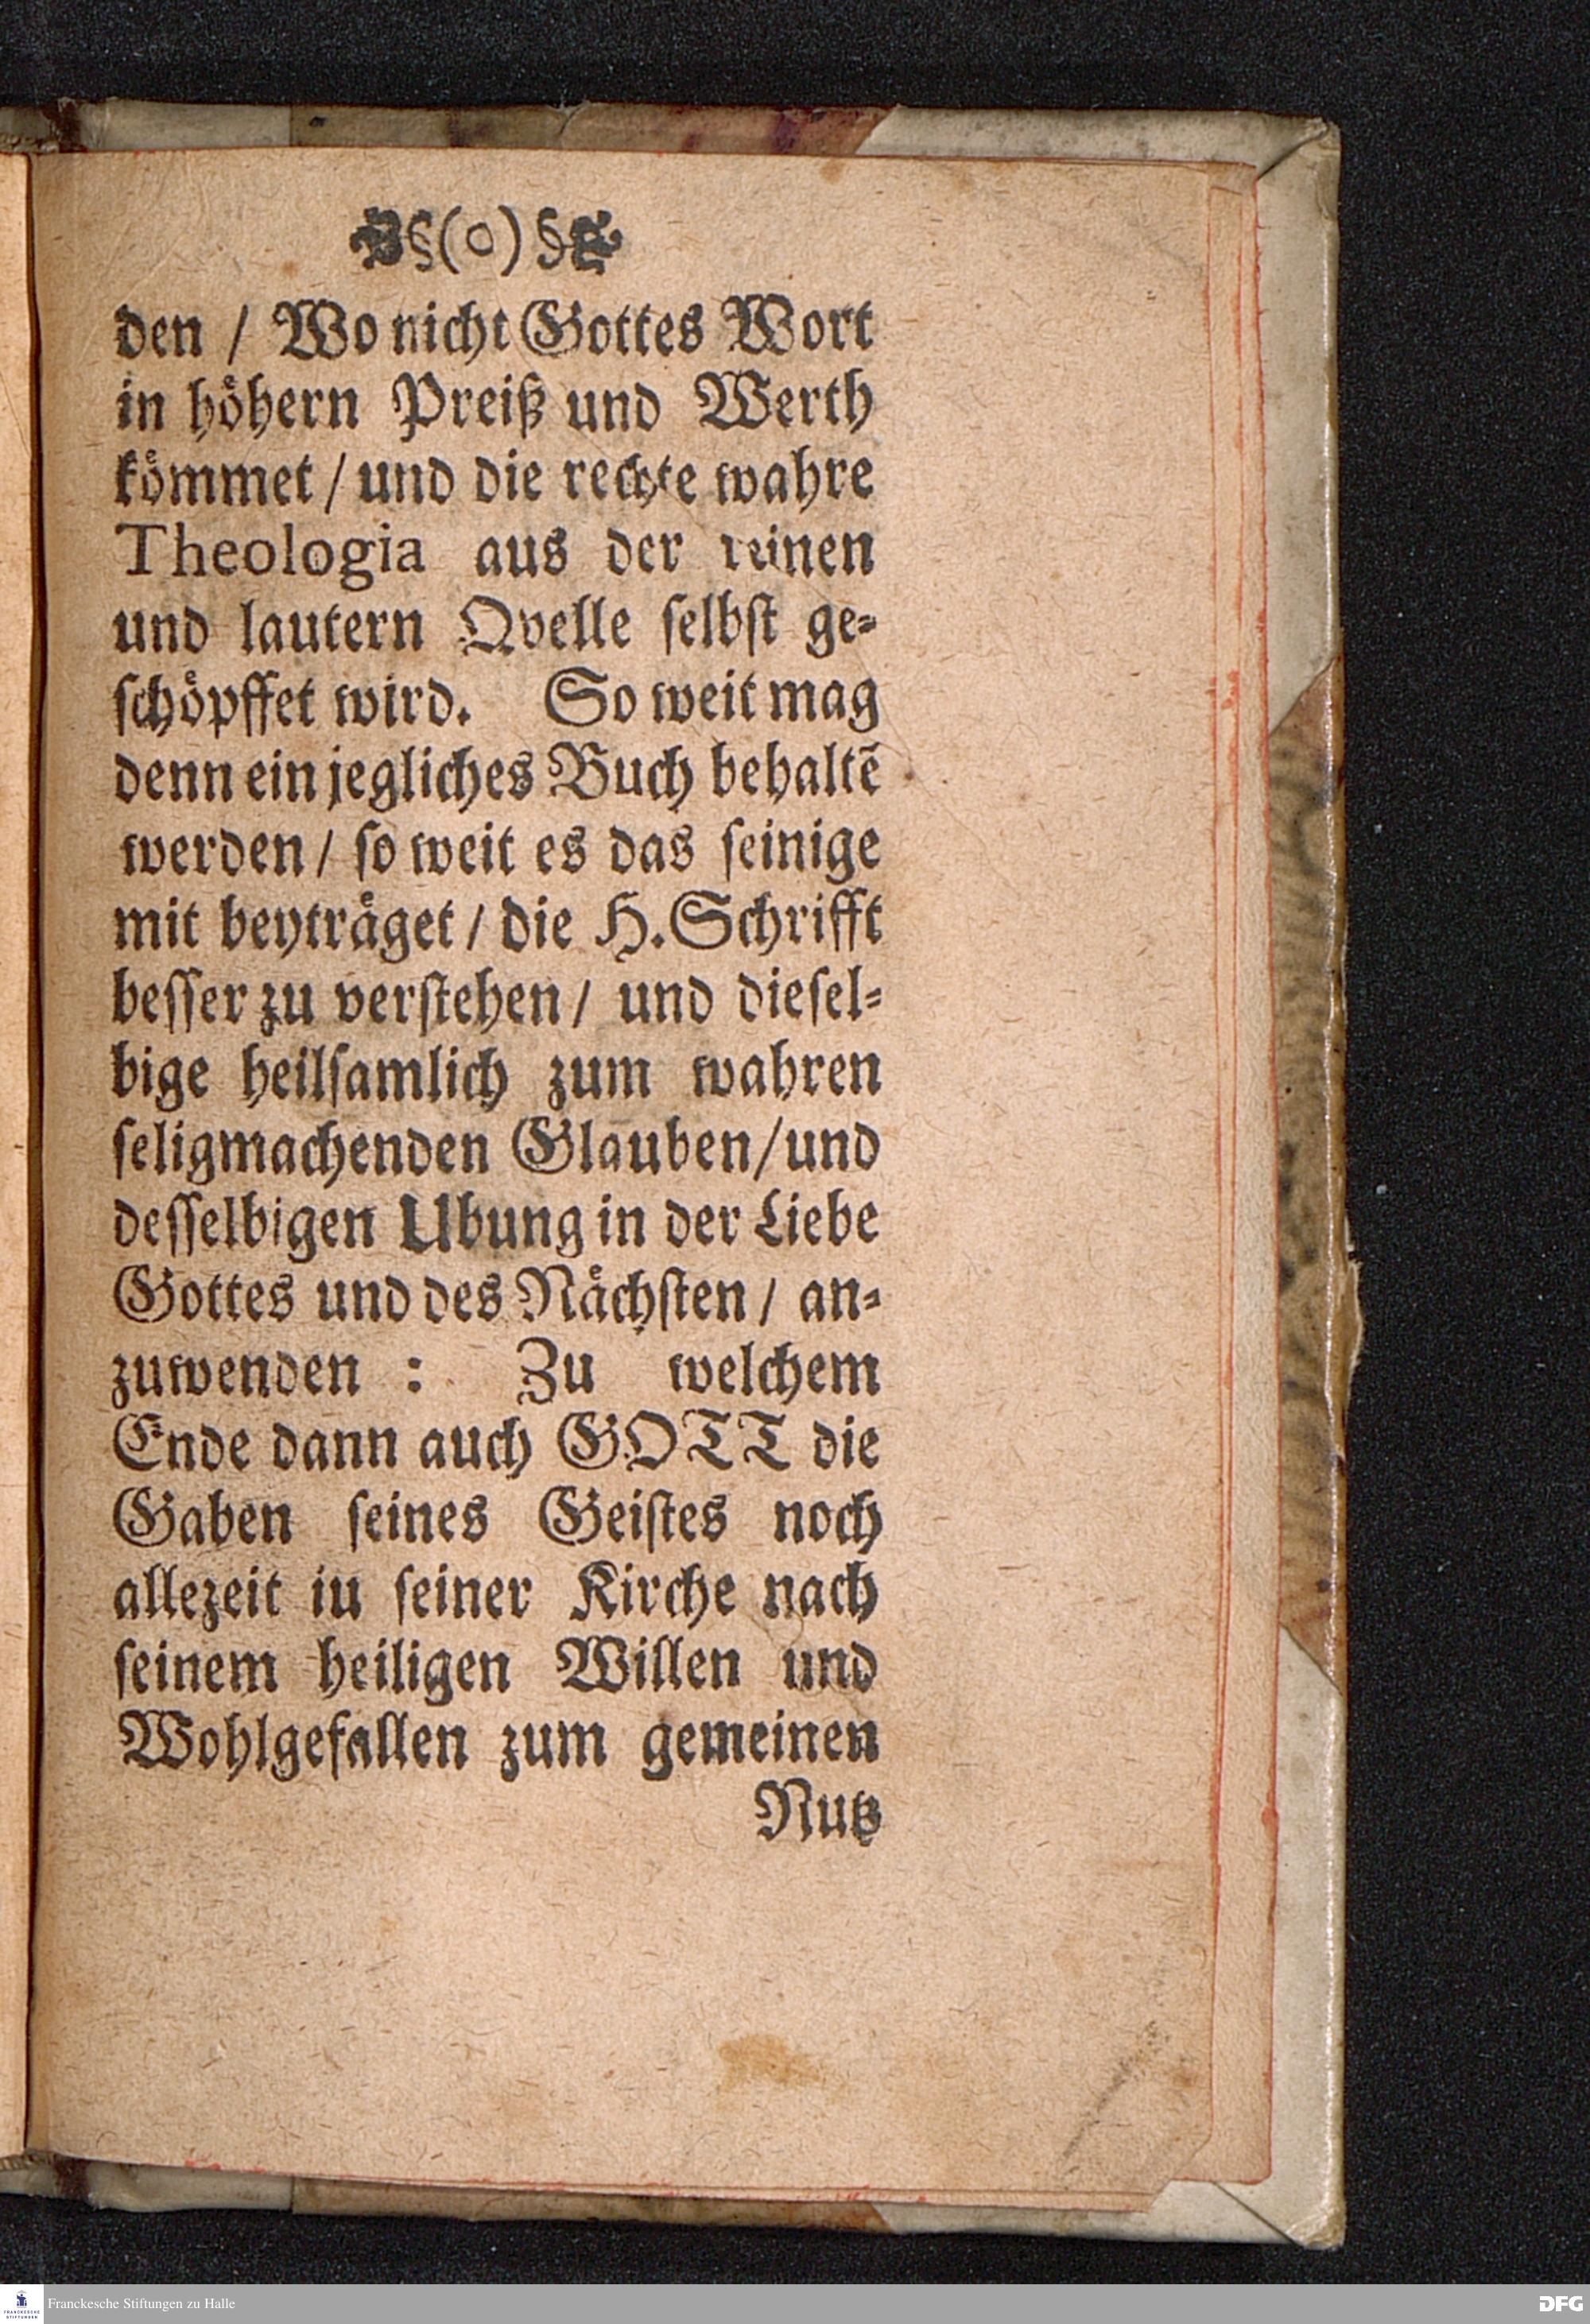 §(o)§
den / Wo nicht Gottes Wort
in höhern Preiß und Werth
kömmet / und die rechte wahre
Theologia aus der reinen
und lautern Qvelle selbst ge-
schöpffet wird. So weit mag
denn ein jegliches Buch behaltē
werden / so weit es das seinige
mit beyträget / die H. Schrifft
besser zu verstehen / und diesel-
bige heilsamlich zum wahren
seligmachenden Glauben / und
desselbigen Ubung in der Liebe
Gottes und des Nächsten / an-
zuwenden : Zu welchem
Ende dann auch GOTT die
Gaben seines Geistes noch
allezeit iu seiner Kirche nach
seinem heiligen Willen und
Wohlgefallen zum gemeinen
Nutz
FRANCKESCHE
STIFTUNGEN
Franckesche Stiftungen zu Halle
DFG